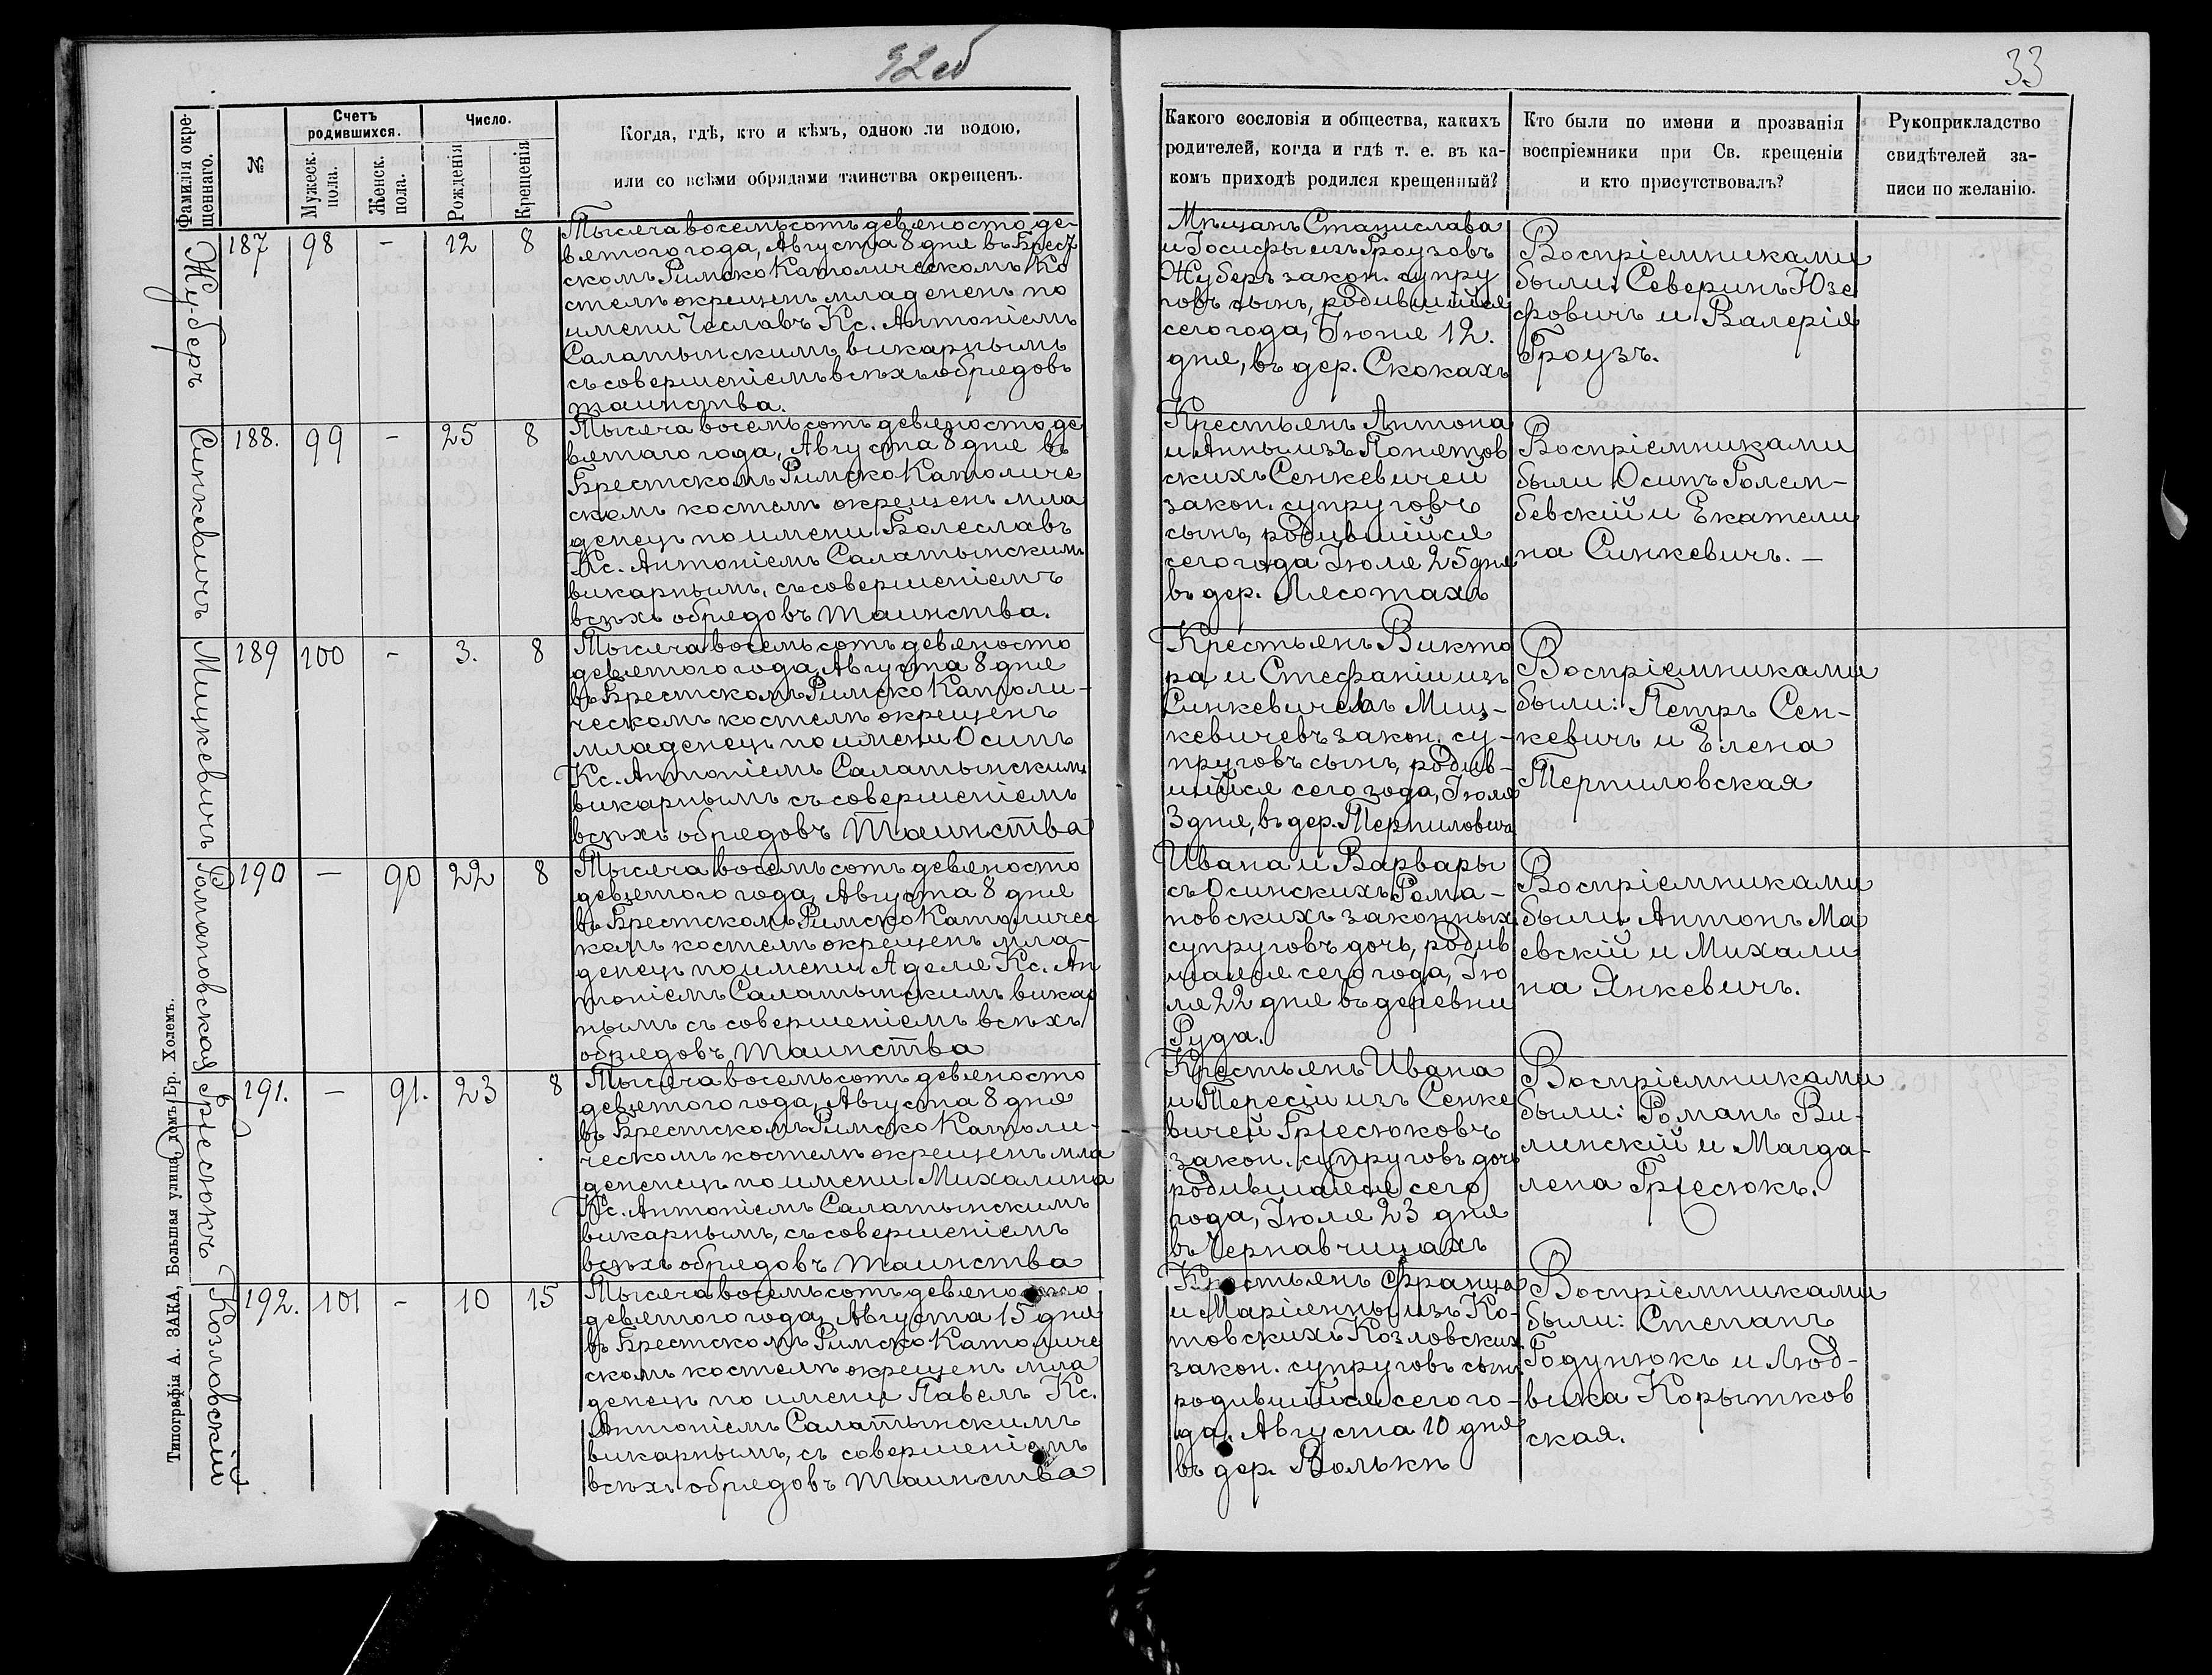 32об
33
Фамилія окре-
щеннаго.
№
Счетъ
родившихся.
Мужеск.
пола.
Женск.
пола.
Число.
Рожденія
Крещенія
Когда, гдѣ, кто и кѣмъ, одною ли водою,
или со всѣми обрядами таинства окрещенъ.
Какого сословія и общества, какихъ
родителей, когда и гдѣ т. е. въ ка-
комъ приходѣ родился крещенный?
Кто были по имени и прозванія
воспріемники при Св. крещеніи
и кто присутствовалъ?
Рукоприкладство
свидѣтелей за-
писи по желанію.
Жу-беръ
187 98 - 12 8
Тысяча восемьсотъ девяносто де-
вятого года, Августа 8 дня въ Брест
скомъ Римско Католическомъ Ко
стелѣ окрещенъ младенецъ по
имени Чеславъ Кс. Антоніемъ
Салатынскимъ викарнымъ
съ совершеніемъ всѣхъ обрядовъ
таинства.
Мѣщанъ Станислава
и Іосифы изъ Гроузовъ
Жуберъ закон. супру
говъ сынъ, родившійся
сего года, Іюня 12.
дня, въ дер. Скокахъ
Воспріемниками
были: Северинъ Юзе
фовичъ и Валерія
Гроузъ.
Синкевичъ
188. 99 - 25 8
Тысяча восемьсотъ девяносто де
вятаго года, Августа 8 дня въ
Брестскомъ Римско Католиче
скомъ костелѣ окрещенъ мла
денецъ по имени Болеславъ
Кс. Антоніемъ Салатынскимъ
викарнымъ, съ совершеніемъ
всѣхъ обрядовъ таинства.
Крестьянъ Антона
и Анны изъ Понятов
скихъ Сенкевичей
закон. супруговъ
сынъ, родившійся
сего года Іюля 25 дня
въ дер. Лясотахъ
Воспріемниками
были Осипъ Голем-
бевскій и Екатели
на Синкевичъ. -
Мицкевичъ
189 100 - 3. 8
Тысяча восемьсотъ девяносто
девятого года, Августа 8 дня
въ Брестскомъ Римско Католи-
ческомъ костелѣ окрещенъ
младенецъ по имени Осипъ
Кс. Антоніемъ Салатынскимъ
викарнымъ съ совершеніемъ
всѣхъ обрядовъ Таинства
Крестьянъ Викто
ра и Стефаніи изъ
Синкевичевъ Миц-
кевичевъ закон. су-
пруговъ сынъ, родив-
шійся сего года, Іюля
3 дня, въ дер. Терпиловичи
Воспріемниками
были: Петръ Сен-
кевичъ и Елена
Терпиловская
Романовская
190 - 90 22 8
Тысяча восемьсотъ девяносто
девятого года, Августа 8 дня
въ Брестскомъ Римско Католичес
комъ костелѣ окрещенъ мла-
денецъ по имени Аделя Кс. Ан
тоніемъ Салатынскимъ викар
нымъ съ совершеніемъ всѣхъ
обрядовъ таинства
Ивана и Варвары
съ Осинскихъ Рома-
новскихъ законныхъ
супруговъ дочь, родив
шаяся сего года, Ію
ля 22 дня въ деревни
Руда.
Воспріемниками
были Антонъ Ма
евскій и Михали
на Янкевичъ.
Грjесюкъ
191. - 91. 23 8
Тысяча восемьсотъ девяносто
девятого года, Августа 8 дня
въ Брестскомъ Римско Католи-
ческомъ костелѣ окрещенъ мла
денецъ по имени Михалина
Кс. Антоніемъ Салатынскимъ
викарнымъ, съ совершеніемъ
всѣхъ обрядовъ таинства
Крестьянъ Ивана
и Тересіи изъ Сенке
вичей Грjесюковъ
закон. супруговъ дочь
родившаяся сего
года, Іюля 23 дня
въ Чернавчицахъ
Воспріемниками
были: Романъ Ви-
линскій и Магда-
лена Грjесюкъ.
Козловскій
192. 101 - 10 15
Тысяча восемьсотъ девяносто
девятого года, Августа 15 дня
въ Брестскомъ Римско Католиче
скомъ костелѣ окрещенъ мла
денецъ по имени Павелъ Кс.
Антоніемъ Салатынскимъ
викарнымъ, съ совершеніемъ
всѣхъ обрядовъ таинства
Крестьянъ Франца
и Маріянны изъ Ко-
товскихъ Козловскихъ
закон. супруговъ сынъ
родившійся сего го-
да, Августа 10 дня
въ дер. Волькѣ
Воспріемниками
были: Степанъ
Годунюкъ и Люд-
вика Корытков
ская.
Типографія А. ЗАКА, Большая улица, домъ Ер. Холемъ.